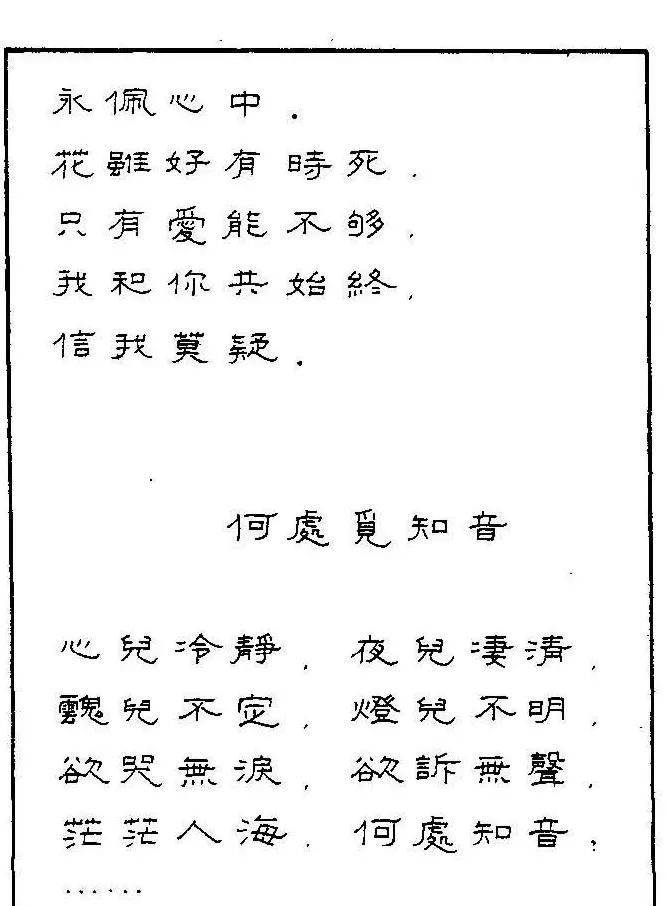 永佩心中．
花雖好有時死．
只有愛能不够．
我和你共始終．
信我莫疑．
何處覓知音
心兒冷靜．夜兒淒清．
魂兒不定．燈兒不明．
欲哭無淚．欲訴無聲．
茫茫人海．何處知音？
……